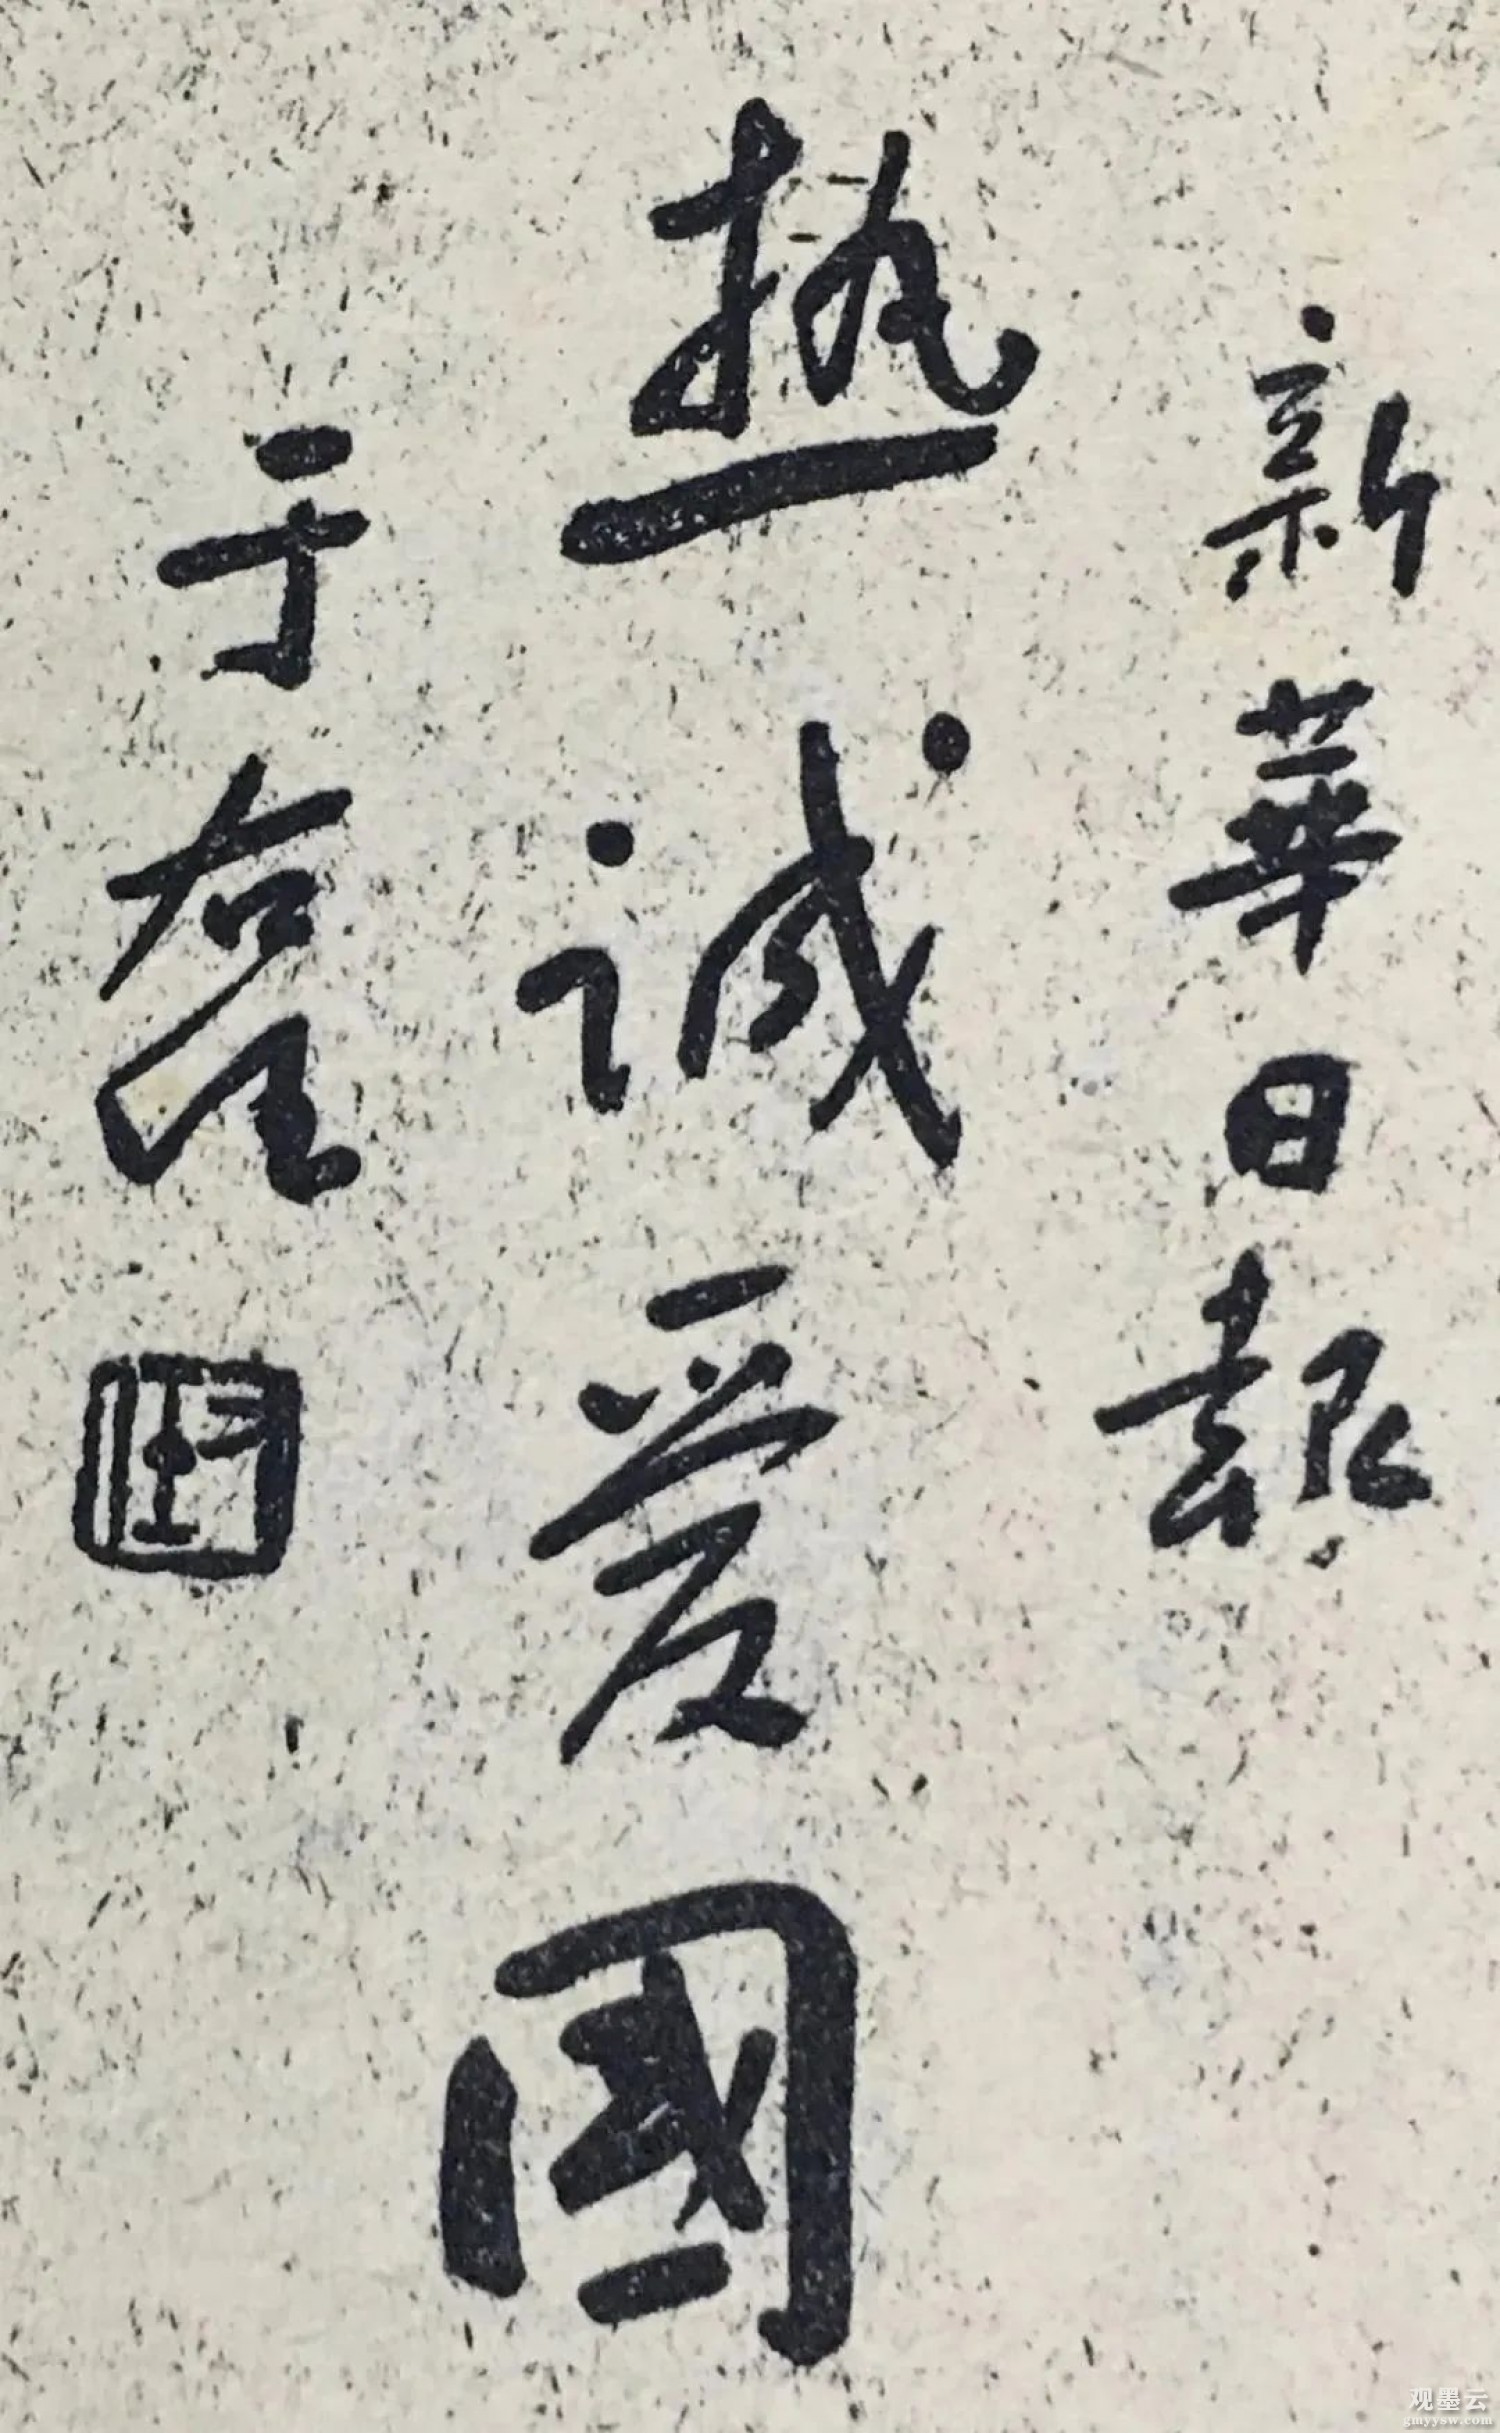 新華日報
热诚爱國
于右任
观墨云
gmyysw.com